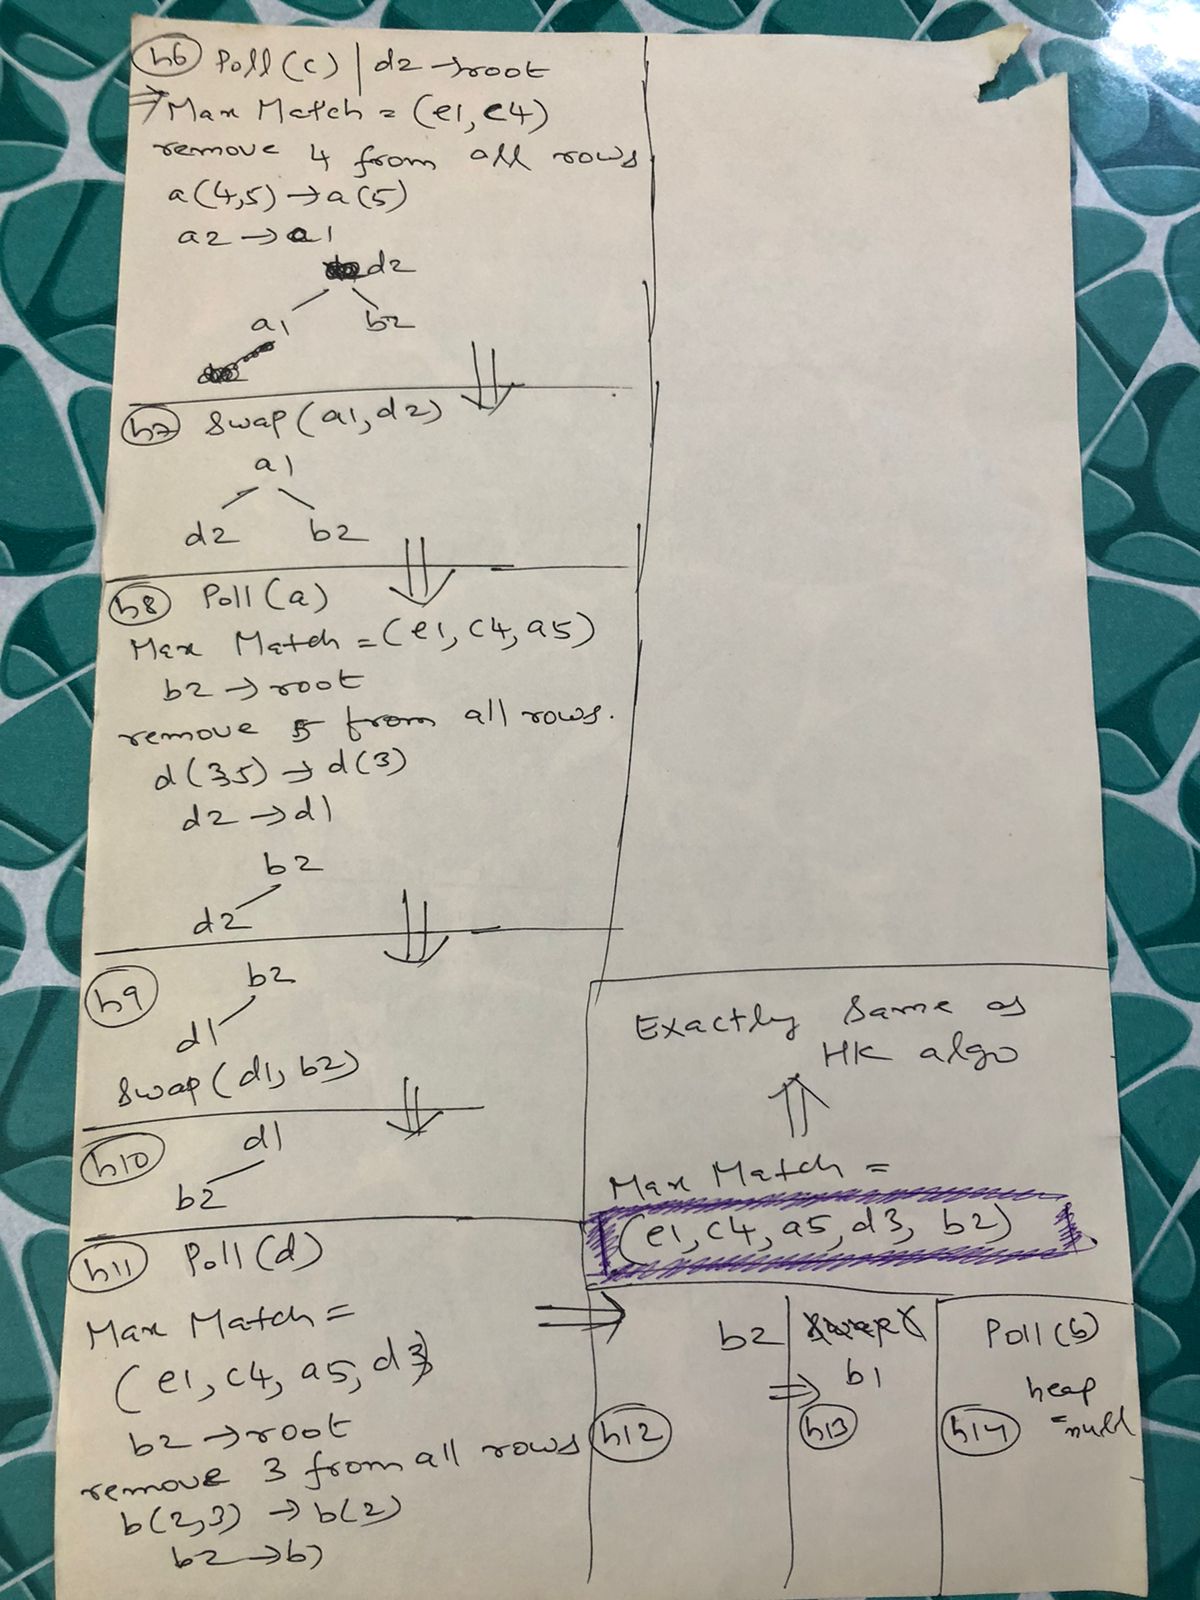 h6 Poll(c) | d2 → root
⇒ Max Match = (e1, c4)
remove 4 from all rows
a(4,5) → a(5)
a2 → a1
d2
a1 b2
h7 Swap(a1, d2)
a1
d2 b2
h8 Poll(a)
Max Match = (e1, c4, a5)
b2 → root
remove 5 from all rows.
d(3,5) → d(3)
d2 → d1
b2
d2
h9 b2
d1
Swap(d1, b2)
h10 d1
b2
h11 Poll(d)
Max Match =
(e1, c4, a5, d3)
b2 → root
remove 3 from all rows
b(2,3) → b(2)
b2 → b1
Exactly Same as
HK algo
Max Match =
(e1, c4, a5, d3, b2)
b2
h12
⇒ b1
h13
Poll(b)
heap
= null
h14